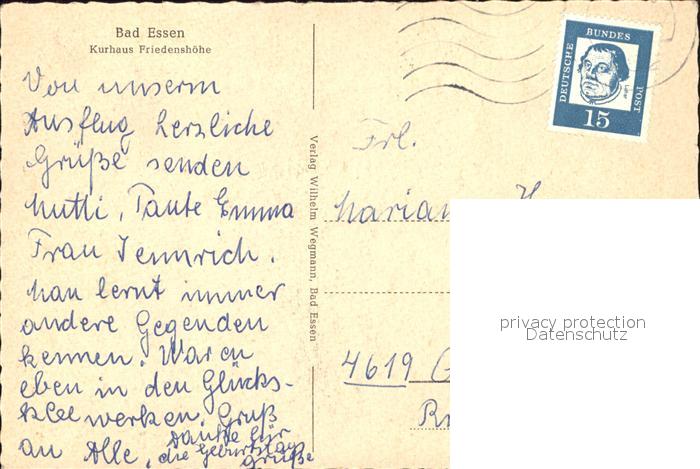 Bad Essen
Kurhaus Friedenshöhe
Von unserm
Ausflug herzliche
Grüße senden
Mutti, Tante Emma
Frau Jennrich.
Man lernt immer
andere Gegenden
kennen. Waren
eben in den Glücks-
klee werken. Gruß
an Alle.
Danke für
die Geburtstags
grüße
Verlag Wilhelm Wegmann, Bad Essen
DEUTSCHE
BUNDES
POST
Luther
15
Frl.
Marian
4619
privacy protection
Datenschutz